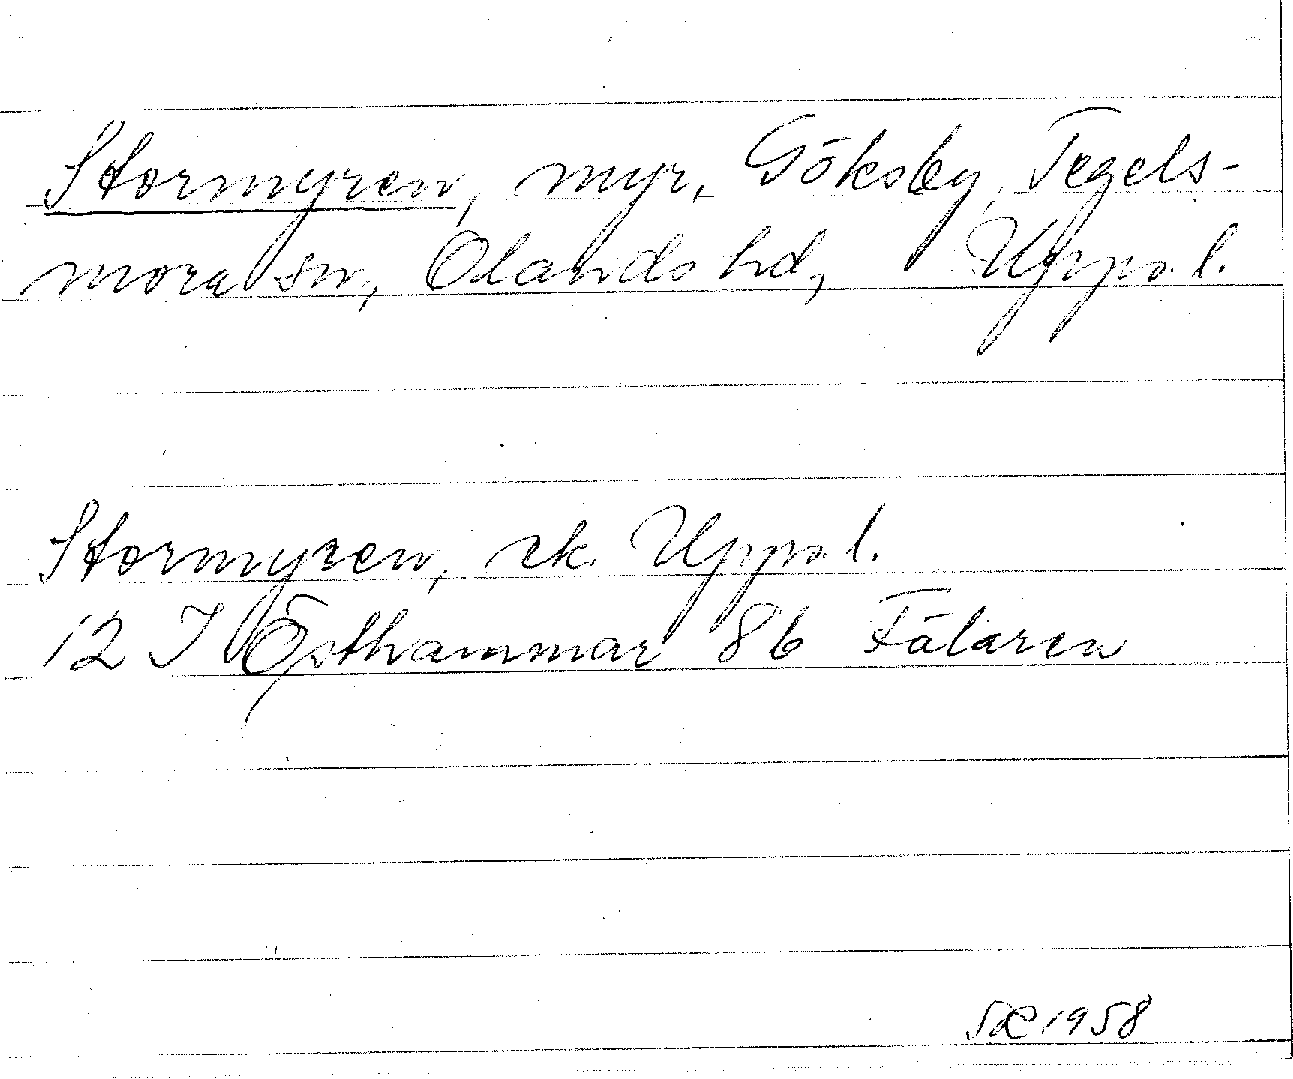 Stormyren, myr, Göksby, Tegels-
mora sn, Olands hd, Upps. l.
Stormyren, ek. Upps l.
12 I Östhammar 8b Fälaren
1958